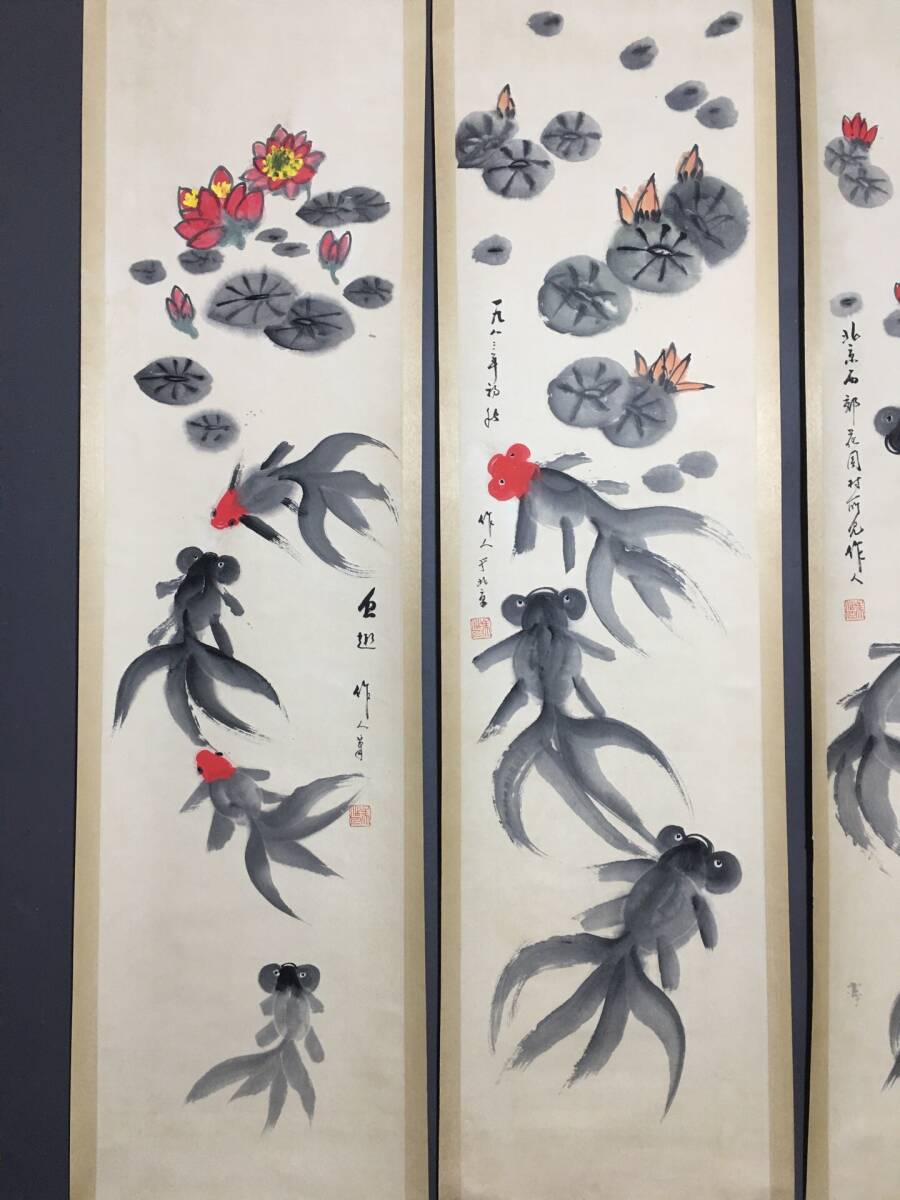 魚趣
作人
一九八三年初秋
作人
北京
北京西郊花园村所见作人